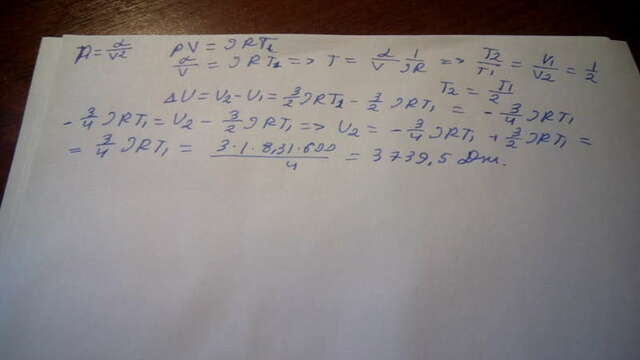 P₁ = α/V² PV = νRT₂
α/V = νRT₂ => T = α/V 1/νR => T₂/T₁ = V₁/V₂ = 1/2
T₂ = T₁/2
ΔU = U₂ - U₁ = 3/2 νRT₂ - 3/2 νRT₁ = - 3/4 νRT₁
- 3/4 νRT₁ = U₂ - 3/2 νRT₁ => U₂ = - 3/4 νRT₁ + 3/2 νRT₁ =
= 3/4 νRT₁ = 3·1·8,31·600/4 = 3739,5 Дж.